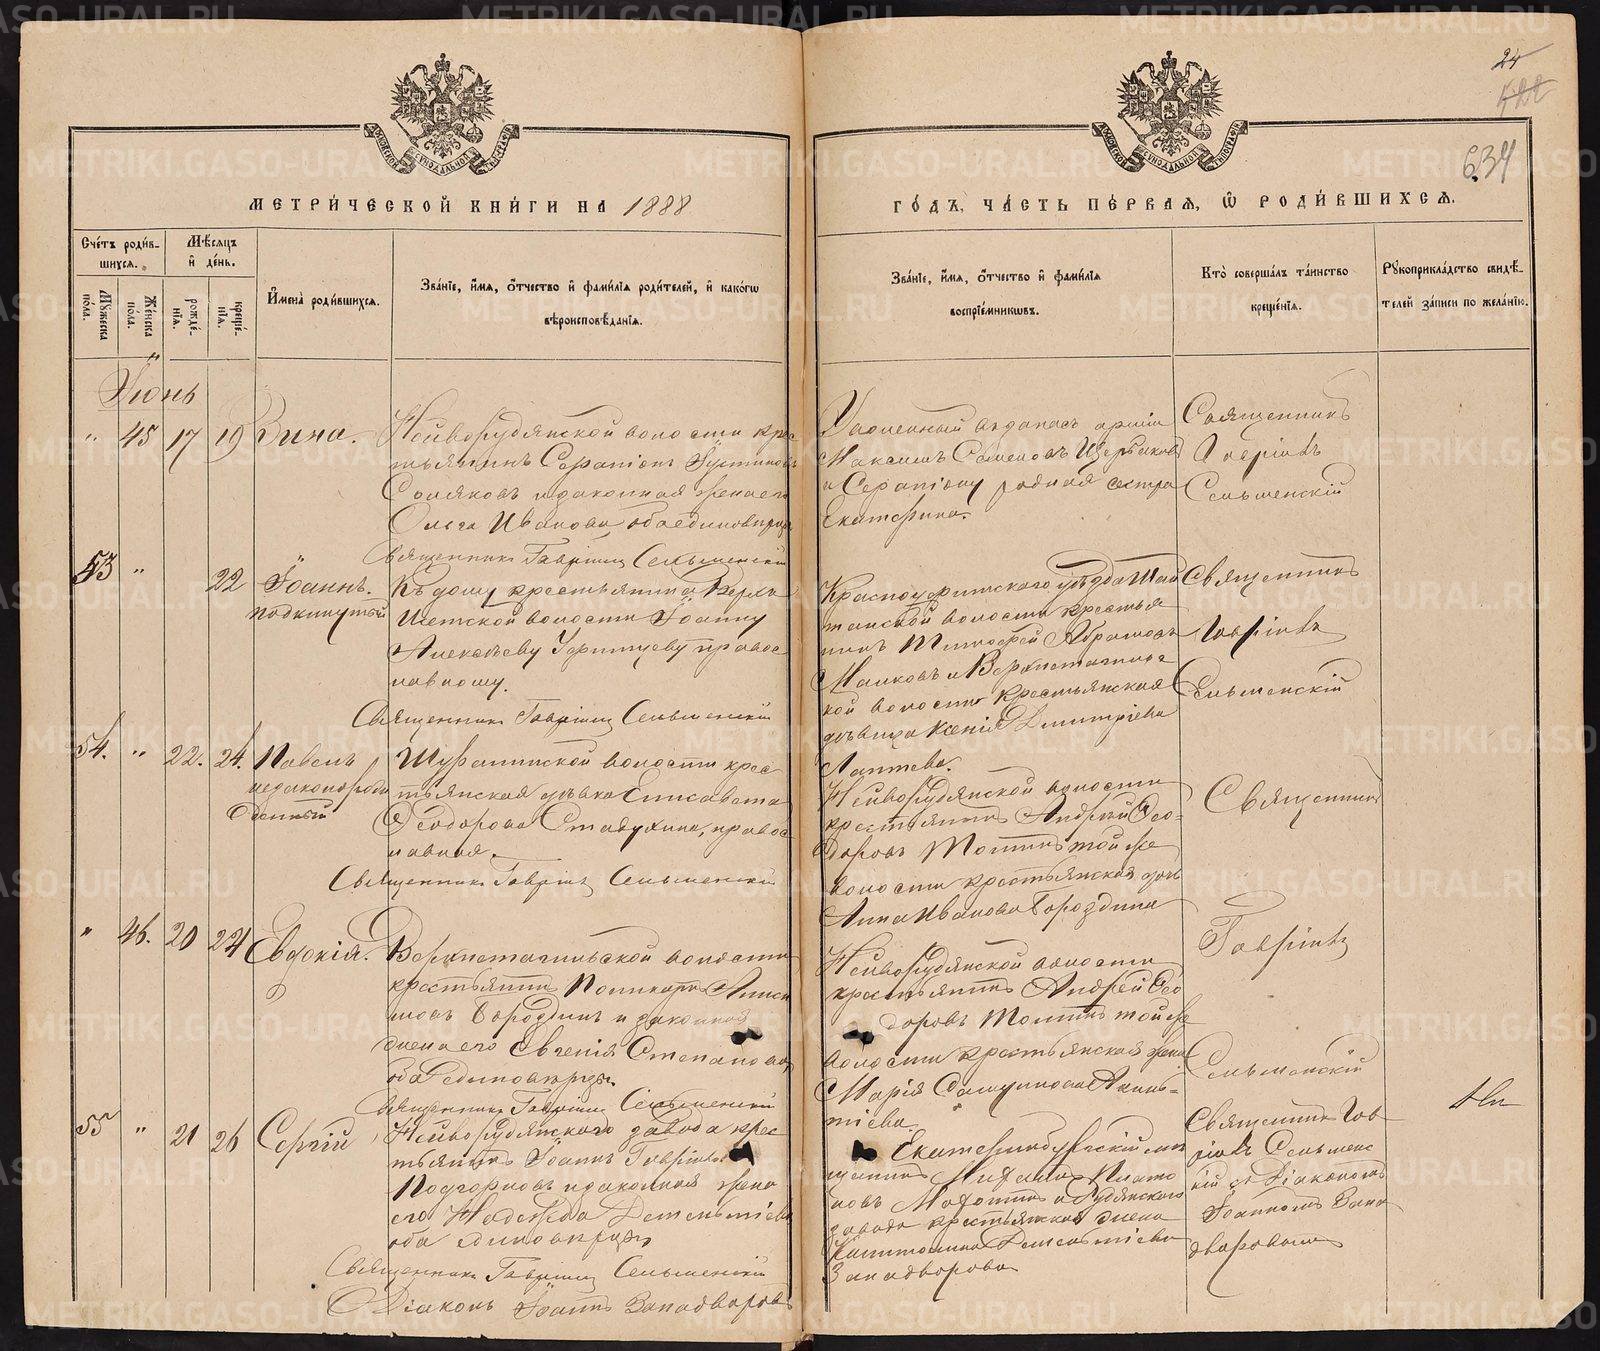 24
422
634
МЕТРИ́ЧЕСКОЙ КНИ́ГИ НА 1888
ГО́ДЪ, ЧА́СТЬ ПЕ́РВАЯ, Ѡ РОДИ́ВШИХСѦ.
Сче́тъ роди́в-
шихсѧ.
Мѣ́сѧцъ
и҆ де́нь.
Мꙋ́жеска
по́ла.
Же́нска
по́ла.
рожде́-
нїѧ.
креще́-
нїѧ.
И҆мена̀ роди́вшихсѧ.
Зва́нїе, и҆́мѧ, ѻ҆́тчество и҆ фами́лїѧ роди́телей, и҆ како́гѡ
вѣроисповѣ́данїѧ.
Зва́нїе, и҆́мѧ, ѻ҆́тчество и҆ фами́лїѧ
воспрїе́мникѡвъ.
Кто̀ соверша́лъ та́инство
креще́нїѧ.
Рꙋкоприкла́дство свидѣ́-
телей за́писи по жела́нїю.
Іюнь
" 45 17 19 Зина.
Нейворудянской волости крес
тьянинъ Серапіонъ Іустиновъ
и законная жена его
Ольга Иванова оба единоверцы
Священникъ Гавріилъ Сельменскій
Максимъ Семеновъ Щербаковъ
и Серапіону родная сестра
Екатерина.
Священникъ
Гавріилъ
Сельменскій
53 " 22 Іоаннъ.
подкинутый
Къ дому крестьянина Верхъ
Исетской волости Іоанну
Алексѣеву правос
лавному.
Священникъ Гавріилъ Сельменскій
Красноуфимскаго уѣзда Шай
танской волости крестья
нинъ Тимофей Абрамовъ
и Верхнетагильс
кой волости крестьянская
дѣвица Ксенія Димитріева
Лаптева.
Священникъ
Гавріилъ
Сельменскій
54. " 22. 24. Павелъ
незаконорож
денный
Шуралинской волости крес
тьянская дѣвка Елисавета
Ѳеодорова Стадухина, правос
лавная.
Священникъ Гавріилъ Сельменскій
Нейворудянской волости
крестьянинъ Андрей Ѳео-
доровъ той же
волости крестьянская дочь
Анна Иванова Бороздина
Священникъ
" 46. 20 24 Евдокія.
Верхнетагильской волости
крестьянинъ
Бороздинъ и законная
жена его Евгенія Степанова,
оба единоверцы.
Священникъ Гавріилъ Сельменскій
Нейворудянской волости
крестьянинъ Андрей Ѳео
доровъ той же
волости крестьянская жена
Марія
Гавріилъ
Сельменскій
55 " 21 26 Сергій
Нейворудянскаго завода крес
тьянинъ Іоаннъ Гавріиловъ
Подгорновъ и законная жена
его Надежда Дементіева
оба единоверцы
Священникъ Гавріилъ Сельменскій
Діаконъ Іоаннъ Западворовъ
Екатеринбургскій мѣ
щанинъ
и Рудянскаго
завода крестьянская жена
Капитолина Дементіева
Западворова
Священникъ Гав
ріилъ Сельменс
кій съ Діакономъ
Іоанномъ Запа
дворовымъ